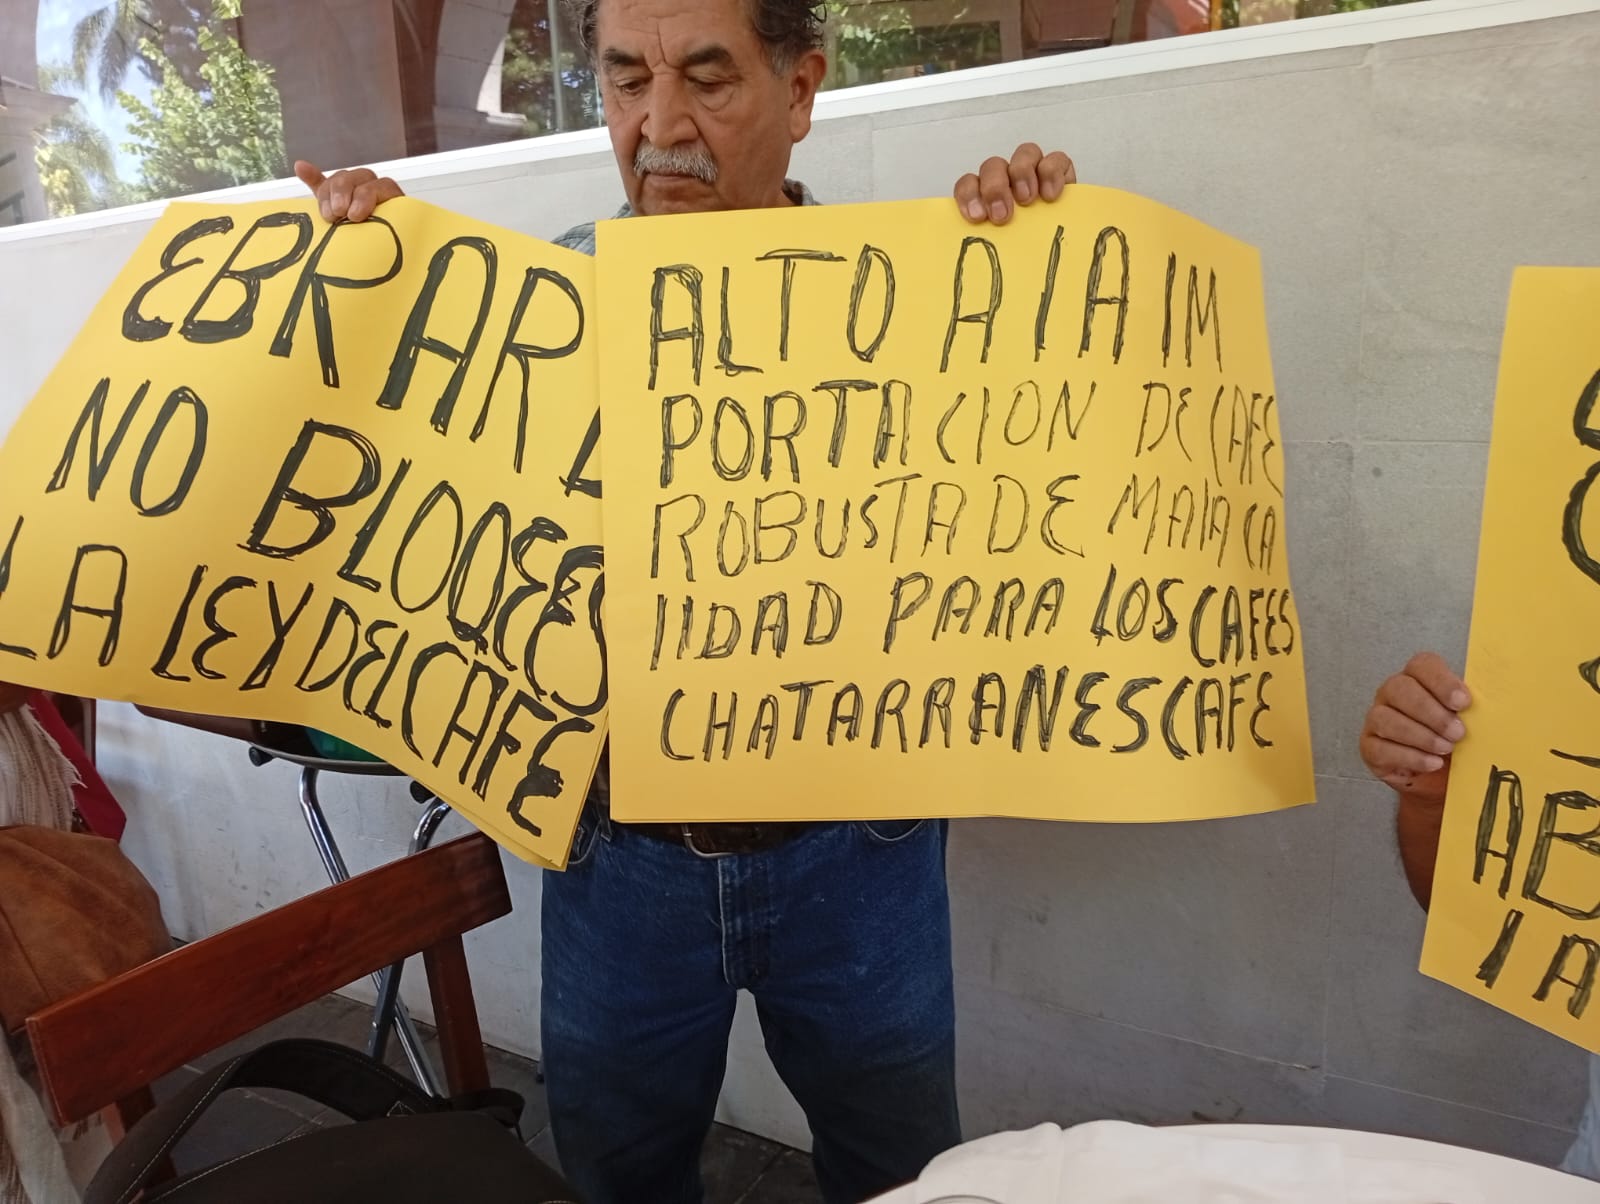 EBRAR
NO BLOQEES
LA LEY DEL CAFE
ALTO A lA IM
PORTACION DE CAFE
ROBUSTA DE MAlA CA
lIDAD PARA LOS CAFES
CHATARRA NESCAFE
AB
lA